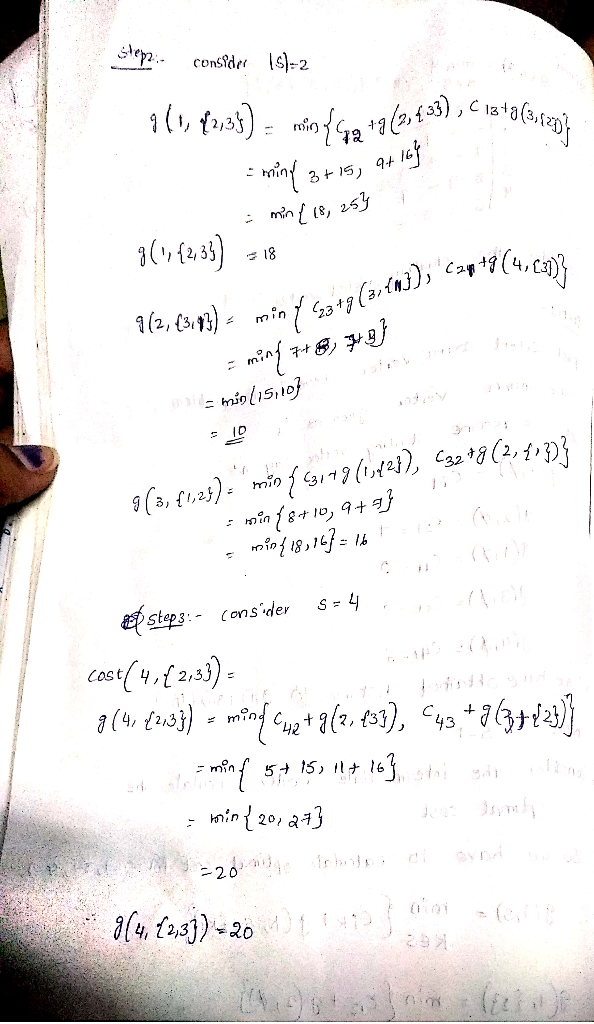 Step2:- consider |S|=2
g(1, {2,3}) = min{C12 + g(2,{3}), C13+g(3,{2})}
= min{ 3+15, 9+16}
= min{18, 25}
g(1,{2,3}) = 18
g(2, {3,1}) = min{ C23+g(3,{1}), C21+g(4,{3})}
= min{ 7+8, 7+3}
= min{15,10}
= 10
g(3, {1,2}) = min{C31+g(1,{2}), C32+g(2,{1})}
= min{8+10, 9+7}
= min{18,16} = 16
Step3:- consider S=4
cost(4,{2,3}) =
g(4, {2,3}) = min{C42+g(2,{3}), C43+g(3,{2})}
= min{ 5+15, 11+16}
= min{20, 27}
=20
g(4, {2,3}) = 20